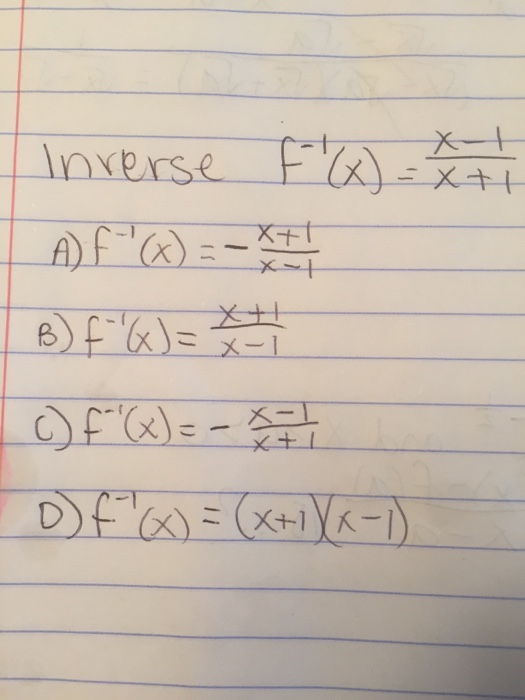 Inverse f⁻¹(x) = x-1/x+1
A) f⁻¹(x) = - x+1/x-1
B) f⁻¹(x) = x+1/x-1
C) f⁻¹(x) = - x-1/x+1
D) f⁻¹(x) = (x+1)(x-1)